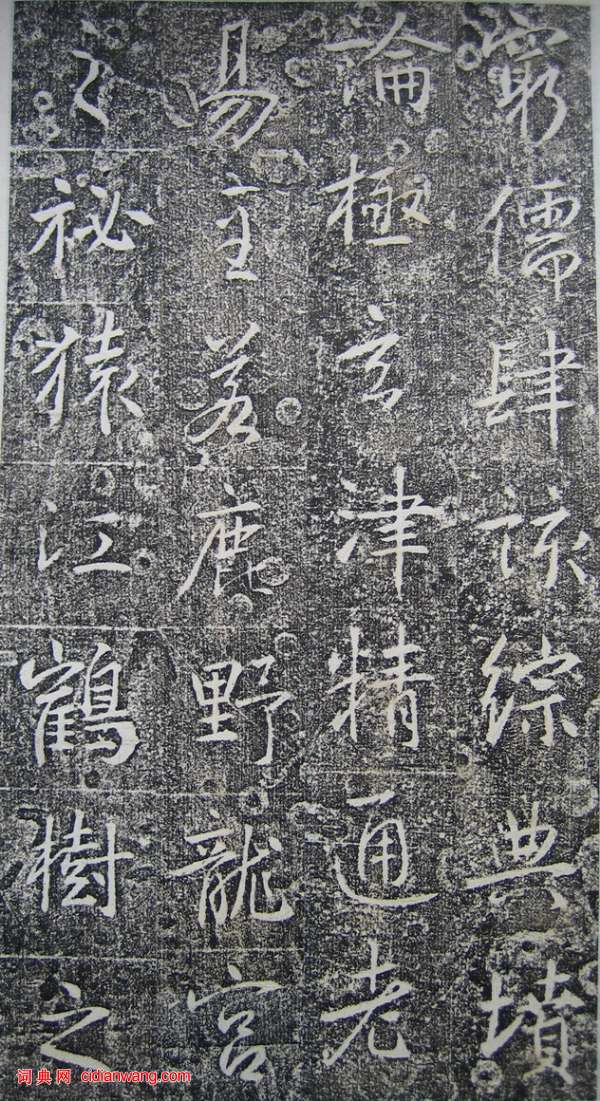 窮儒肆該綜典墳
論極玄津精通老
易至若鹿野龍宮
之祕猿江鶴樹之
词典网 cidianwang.com